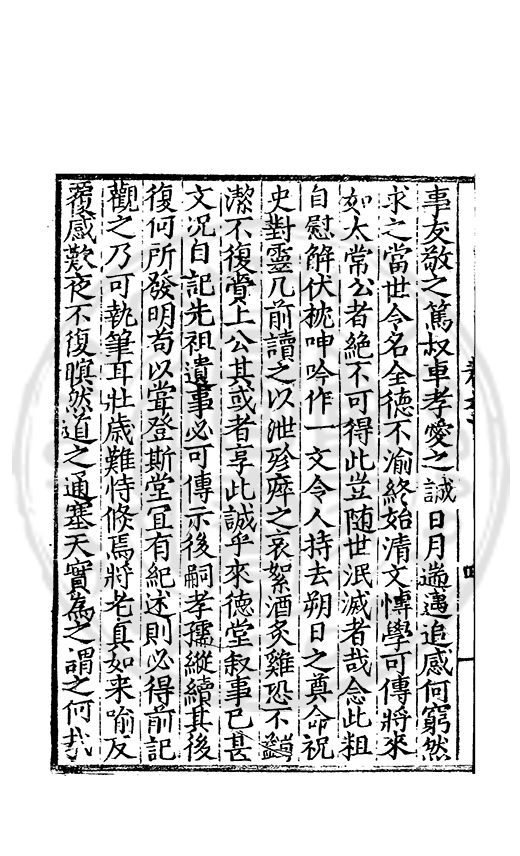 事友敬之篤叔車孝愛之誠日月遄邁追感何窮然
求之當世令名全德不渝終始清文愽學可傳將來
如太常公者絶不可得此豈随世泯滅者哉念此粗
自慰解伏枕呻吟作一文令人持去朔日之奠命祝
史對靈几前讀之以泄殄瘁之哀絮酒炙雞恐不蠲
潔不復賫上公其或者享此誠乎來德堂叙事已甚
文况自記先祖遺事必可傳示後嗣孝孺縱續其後
復何所發明苟以甞登斯堂冝有紀述則必得前記
觀之乃可執筆耳壯歳難恃倏焉將老真如来喻反
覆感歎夜不復瞑然道之通塞天實為之謂之何哉